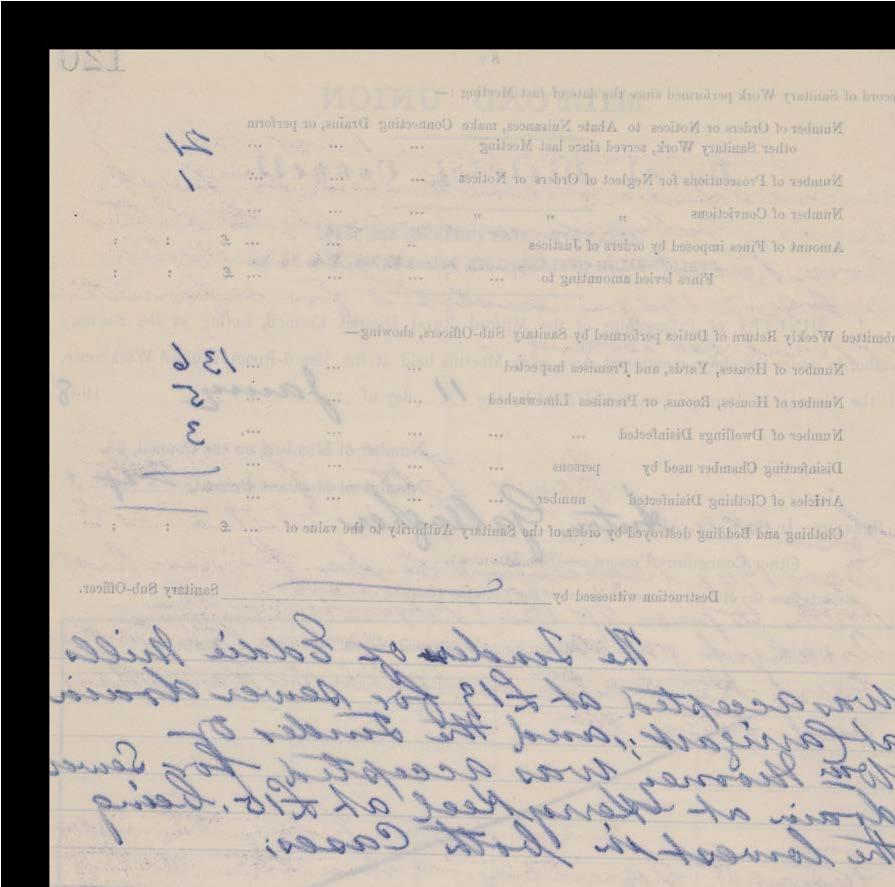 120
8
ecord of Sanitary Work performed since the intend last Meeting :—
Number of Orders or Notices to Abate Nuisances, make Connecting Drains, or perform
other Sanitary Work, served since last Meeting ... ... ... 21
Number of Prosecutions for Neglect of Orders or Notices ... ... ... 1
Number of Convictions " " " ... ... ...
Amount of Fines imposed by orders of Justices .. ... ... £ : :
Fines levied amounting to ... ... ... £ : :
bmitted Weekly Return of Duties performed by Sanitary Sub-Officers, showing—
Number of Houses, Yards, and Premises inspected ... ... ... 136
Number of Houses, Rooms, or Premises Limewashed ... ... ... 5
Number of Dwellings Disinfected ... ... ... ... 3
Disinfecting Chamber used by persons ... ... ...
Articles of Clothing Disinfected number ... ... ...
Clothing and Bedding destroyed by order of the Sanitary Authority to the value of ... £ : :
Destruction witnessed by Sanitary Sub-Officer.
The Tender of Eddie Mills
was accepted at £19 for sewer drain
at Carrigart; and the Tender of
Wm was accepted for Sewer
drain at Kerrykeel at £15, being
the lowest in both Cases.